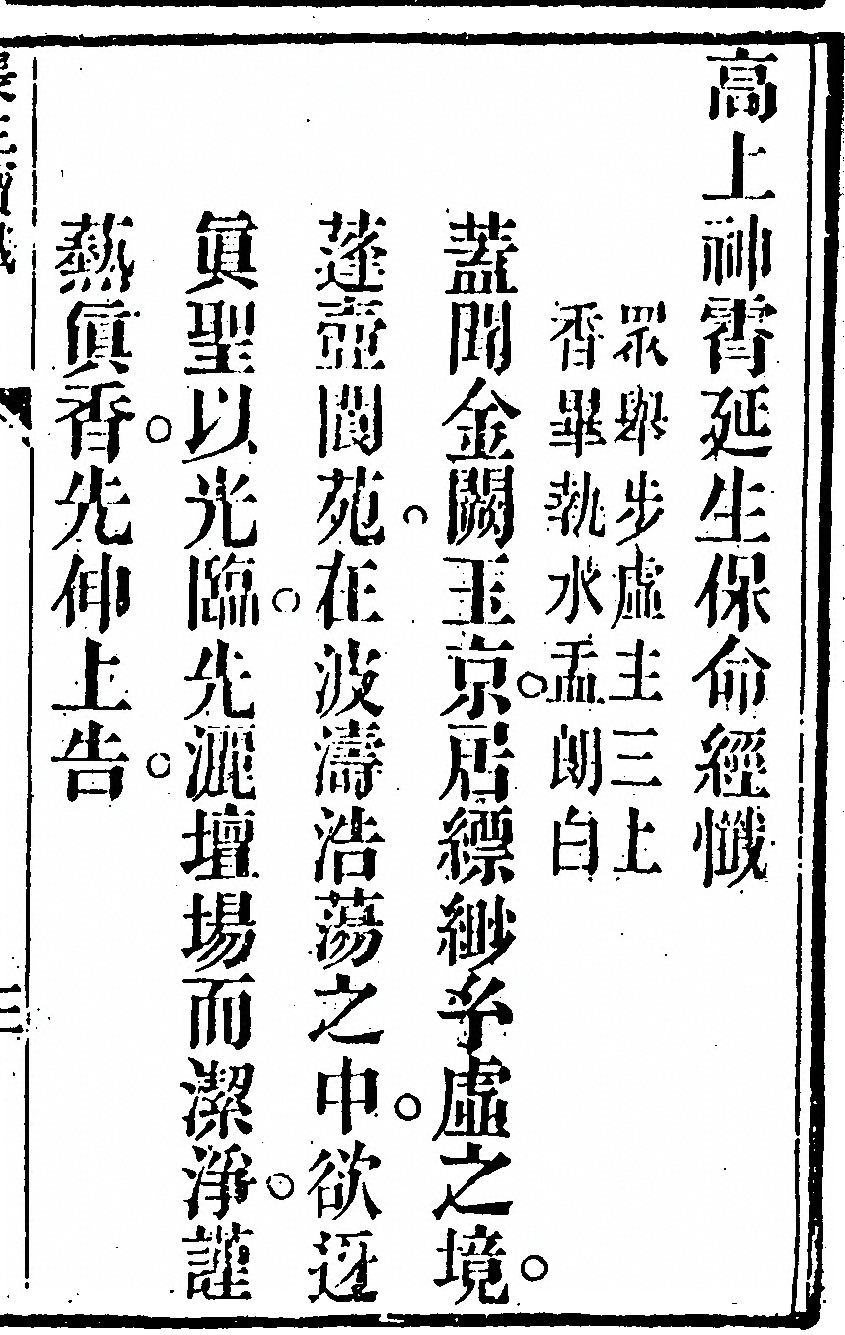 高上神霄延生保命經懺
眾舉步虛主三上
香畢執水盂朗白
蓋聞金闕玉京。居縹緲乎虛之境。
蓬壺閬苑。在波濤浩蕩之中。欲迓
眞聖以光臨。先灑壇場而潔淨。謹
爇眞香。先伸上告。